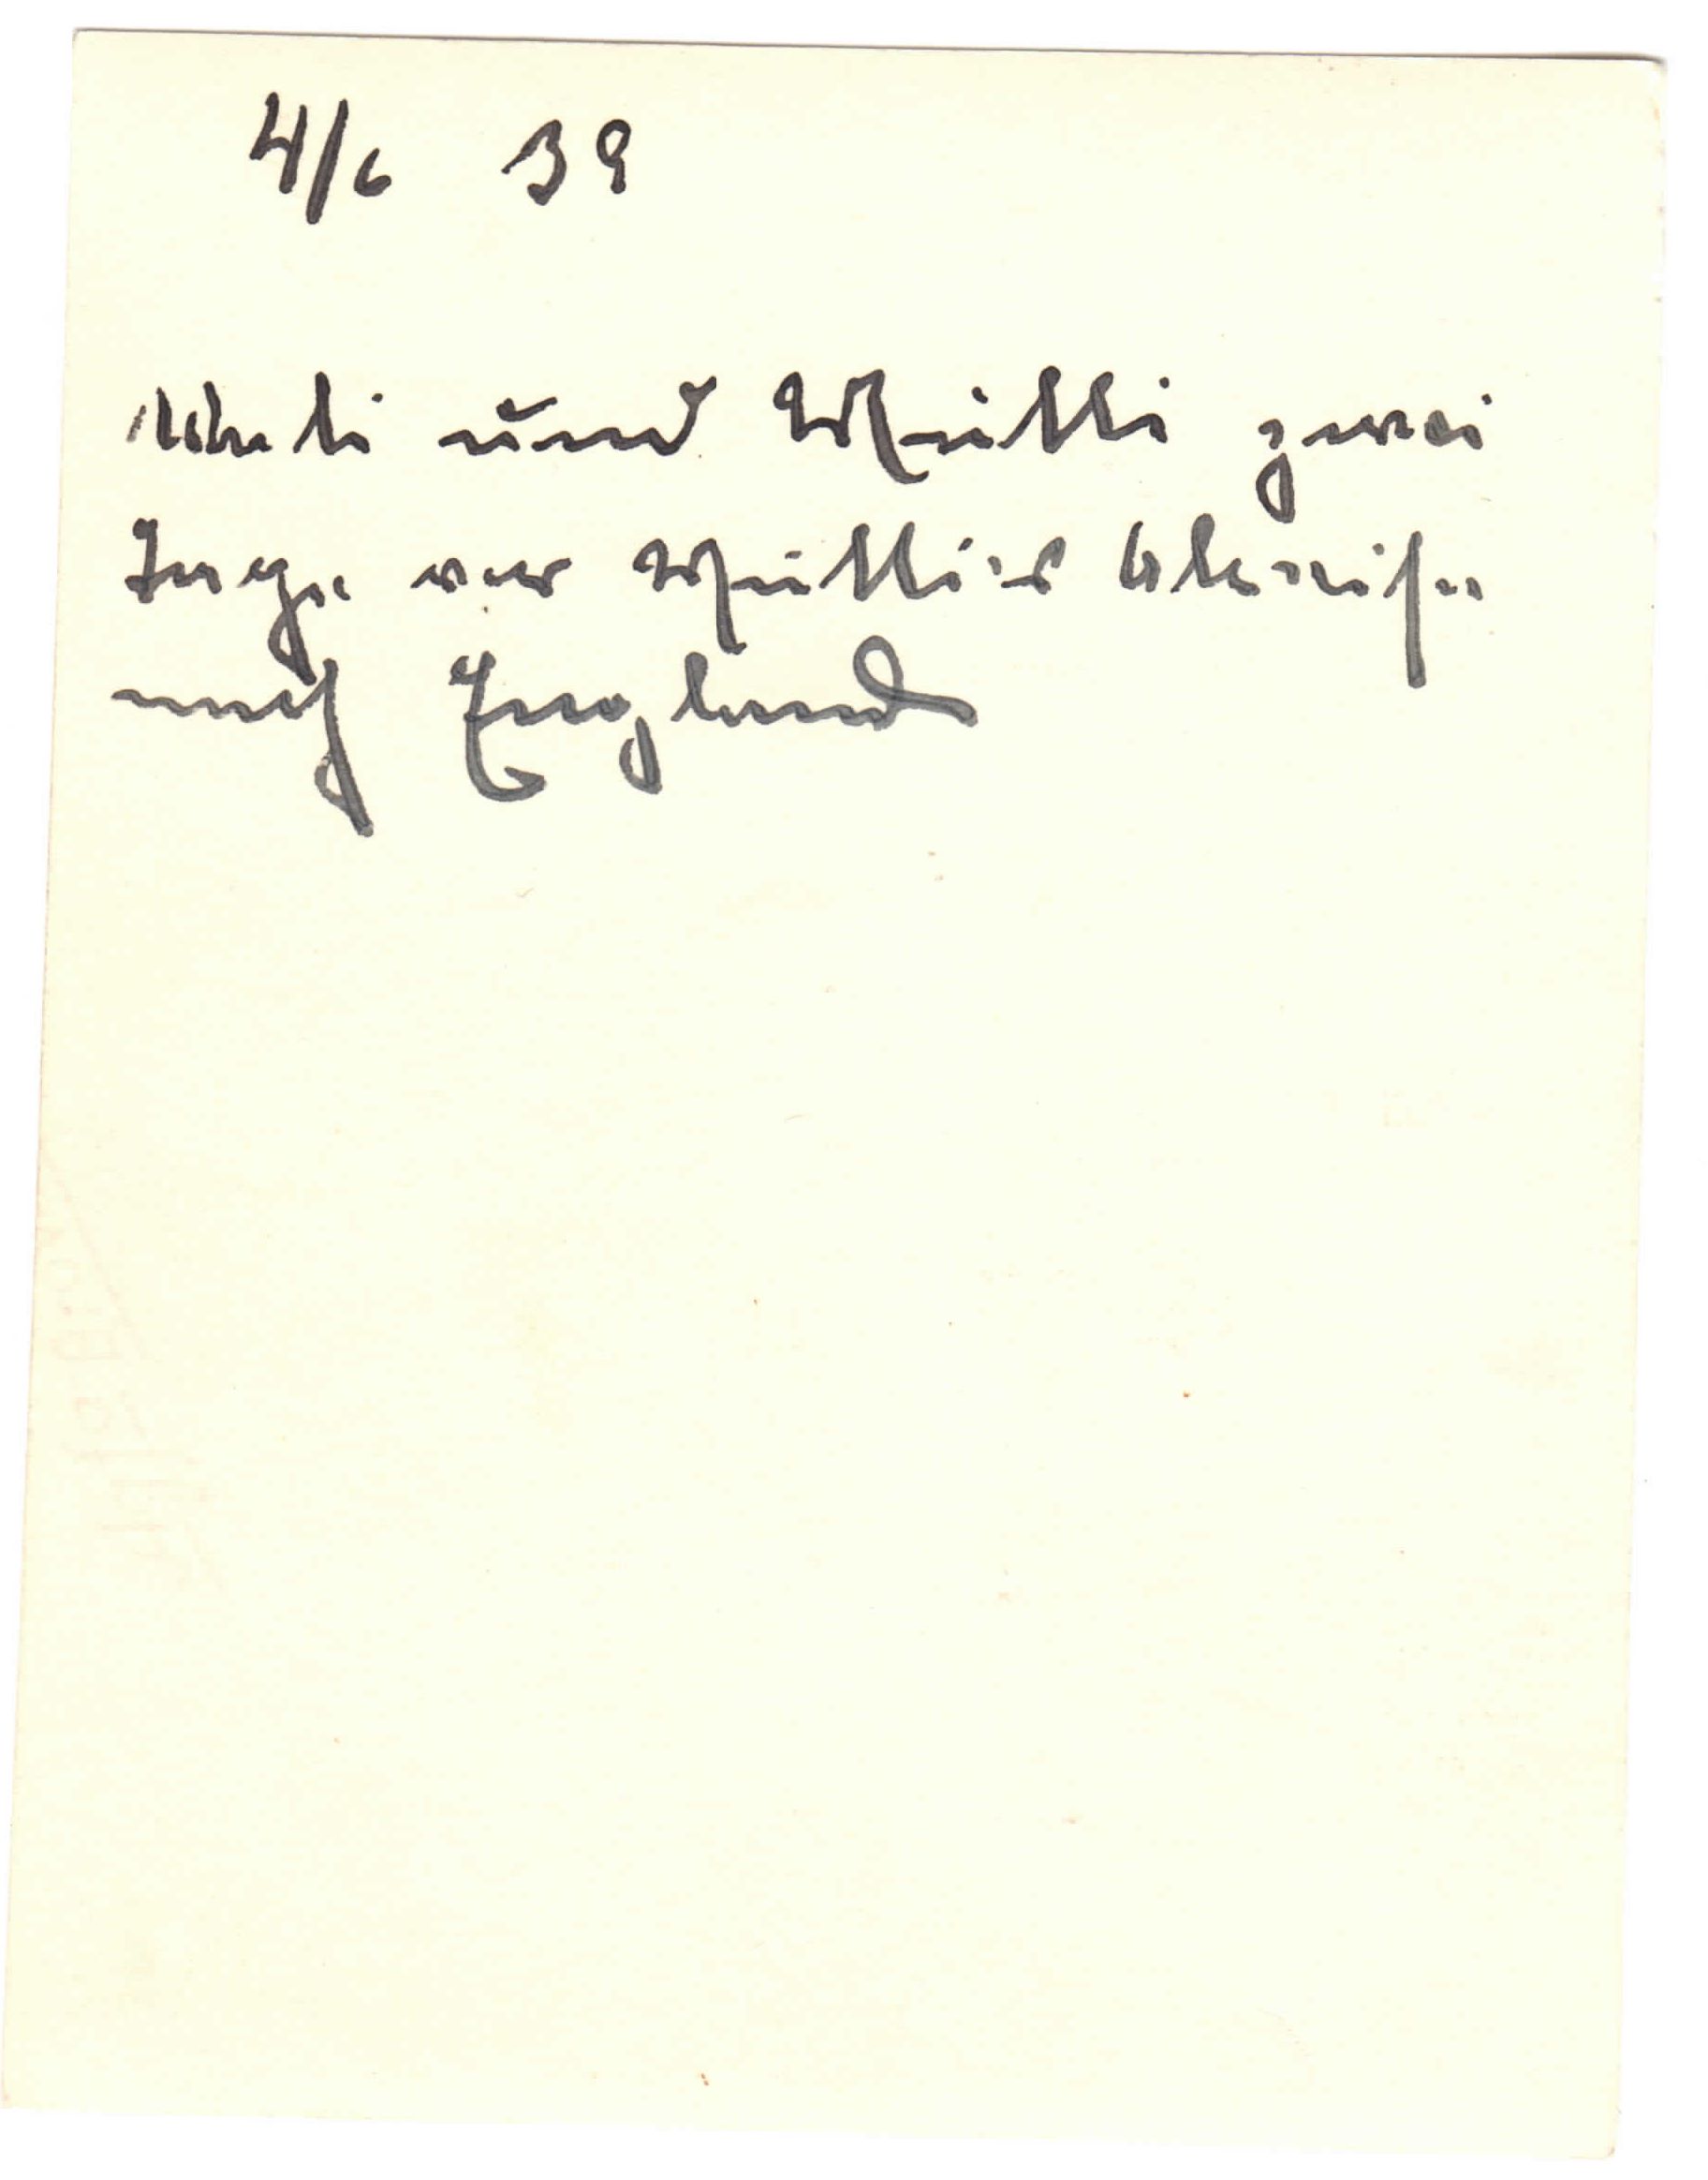 4/6 39
und Mutti zwei
Tage vor Mutti's Abreise
nach England